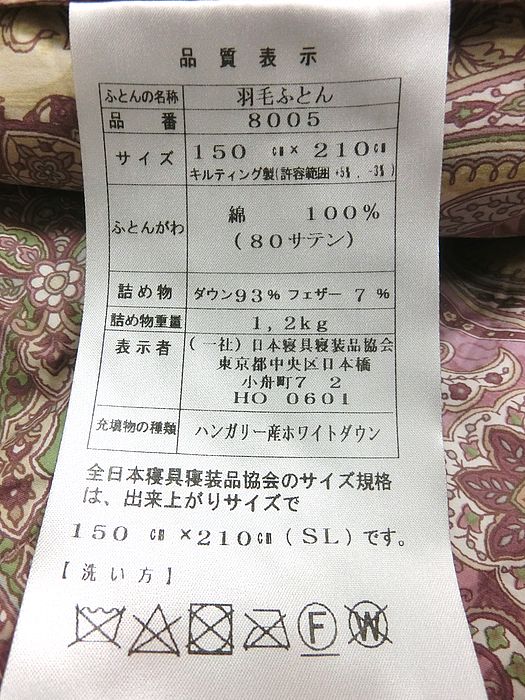 品質表示
ふとんの名称 羽毛ふとん
品番 8005
サイズ 150㎝×210㎝
キルティング製(許容範囲 +5%, -3%)
ふとんがわ 綿 100%
(80サテン)
詰め物 ダウン93% フェザー 7%
詰め物重量 1,2kg
表示者 (一社)日本寝具寝装品協会
東京都中央区日本橋
小舟町7 2
HO 0601
充填物の種類 ハンガリー産ホワイトダウン
全日本寝具寝装品協会のサイズ規格
は、出来上がりサイズで
150 ㎝×210㎝(SL)です。
【洗い方】
F W